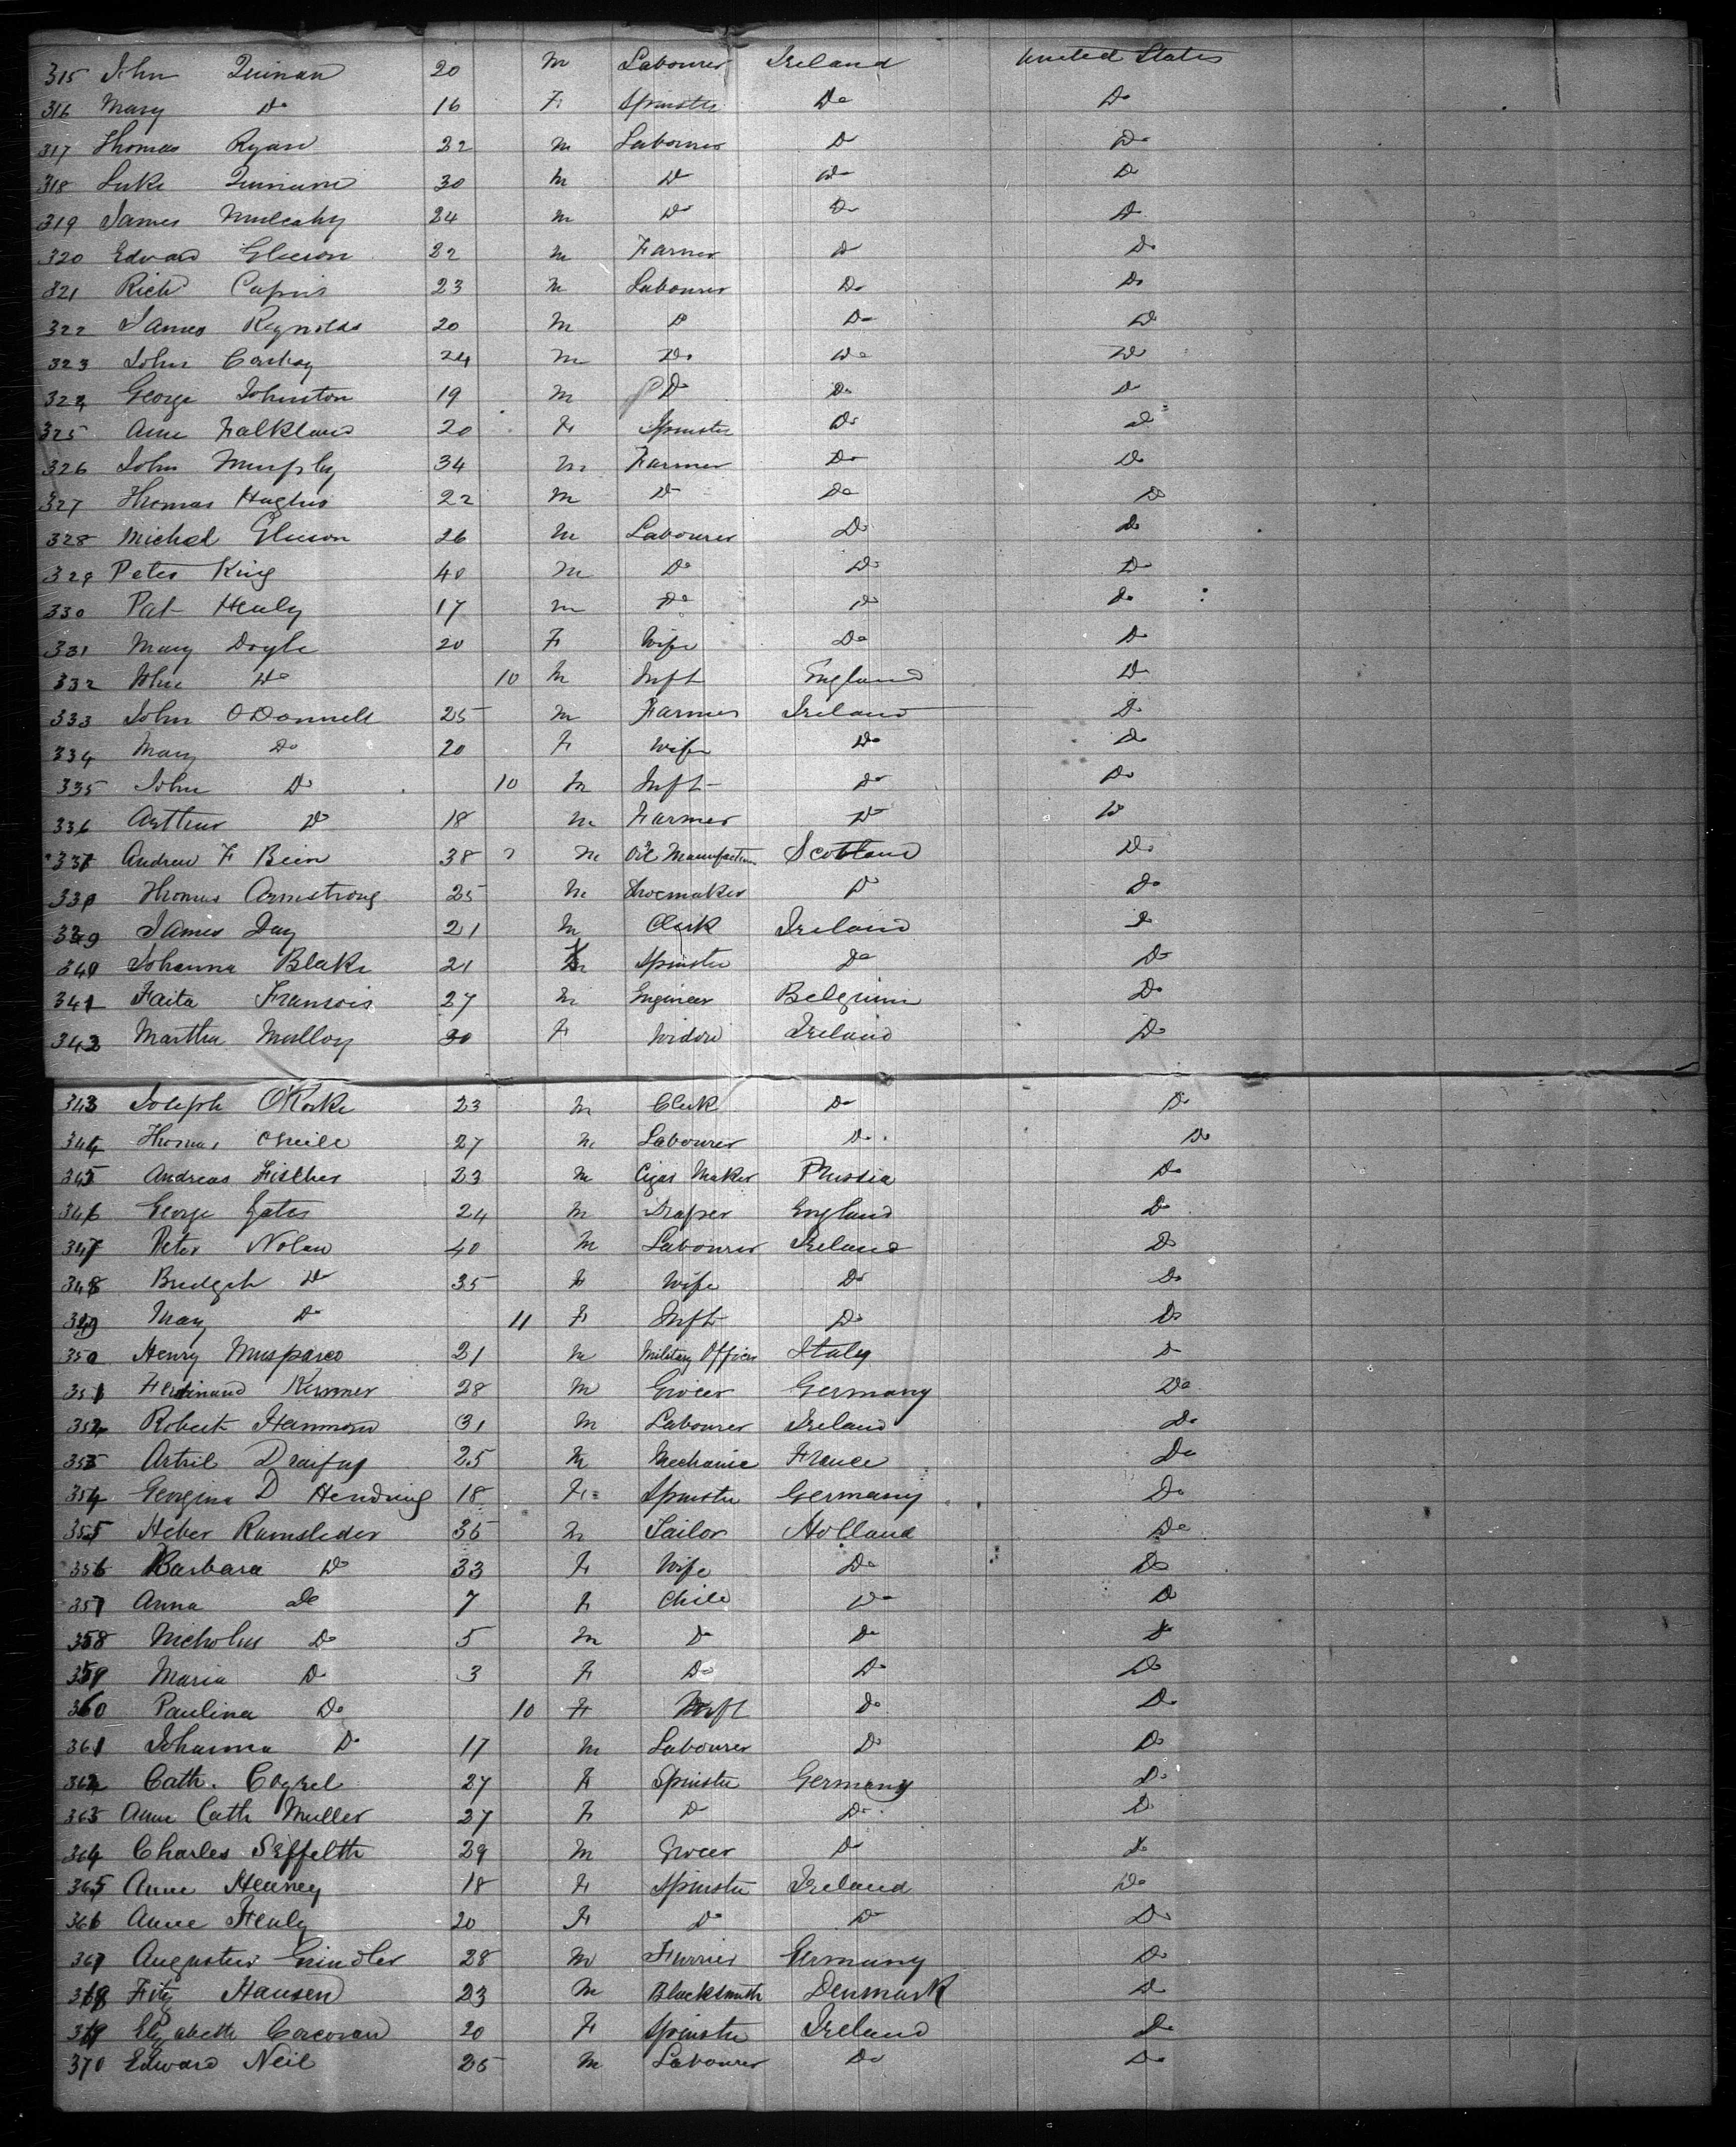 315 John Quinan 20 M Labourer Ireland United States
316 Mary Do 16 F Spinster Do Do
317 Thomas Ryan 22 M Labourer Do Do
318 Luke Do Do 30 M Do
319 James Mulcahy 24 M Do Do Do
320 Edward Gleeson 22 M Farmer Do Do
321 Richd 23 M Labourer Do Do
322 James Reynolds 20 M Do Do Do
323 John 24 M Do Do Do
324 George Johnston 19 M Do Do Do
325 Anne Falkland 20 F Spinster Do Do
326 John Murphy 34 M Farmer Do Do
327 Thomas Hughes 22 M Do Do Do
328 Michel Gleeson 26 M Labourer Do Do
329 Peter King 40 M Do Do Do
330 Pat Healy 17 M Do Do Do
331 Mary Doyle 20 F Wife Do Do
332 John Do 10 M Inft England Do
333 John ODonnell 25 M Farmer Ireland Do
334 Mary Do 20 F Wife Do Do
335 John Do 10 M Inft Do Do
336 Arthur Do 18 M Farmer Do Do
337 Andrew F Bein 38 M Oil Manufacturer Scotland Do
338 Thomas Armstrong 25 M Shoemaker Do Do
339 James Day 21 M Clerk Ireland Do
340 Johanna Blake 21 Spinster Do Do
341 Faita Fransois 27 M Engineer Belgium Do
342 Martha Mulloy 30 F Widow Ireland Do
343 Joseph O'Rorke 23 M Clerk Do Do
344 Thomas ONeile 27 M Labourer Do Do
345 Andreas Fischer 23 M Cigar Maker Prussia Do
346 George Gates 24 M Draper England Do
347 Peter Nolan 40 M Labourer Ireland Do
348 Bridget Do 35 F Wife Do Do
349 Mary Do 11 F Inft Do Do
350 Henry 21 M Military Officer Italy Do
351 Ferdinand Kummer 28 M Grocer Germany Do
352 Robert Hammond 31 M Labourer Ireland Do
353 Draifus 25 M Mechanic France Do
354 Georgina D Hendring 18 F Spinster Germany Do
355 Heber Ramsleder 35 M Tailor Holland Do
356 Barbara Do 33 F Wife Do Do
357 Anna Do 7 F Child Do Do
358 Nicholus Do 5 M Do Do Do
359 Maria Do 3 F Do Do Do
360 Paulina Do 10 F Inft Do Do
361 Johanna Do 17 M Labourer Do Do
362 Cath. 27 F Spinster Germany Do
363 Anne Cath Muller 27 F Do Do Do
364 Charles Seffelth 29 M Grocer Do Do
365 Anne Heaney 18 F Spinster Ireland Do
366 Anne Healy 20 F Do Do Do
367 Augustus Grindler 28 M Furrier Germany Do
368 Fritz Hansen 23 M Blacksmith Denmark Do
369 Elizabeth Corcoran 20 F Spinster Ireland Do
370 Edward Neil 25 M Labourer Do Do